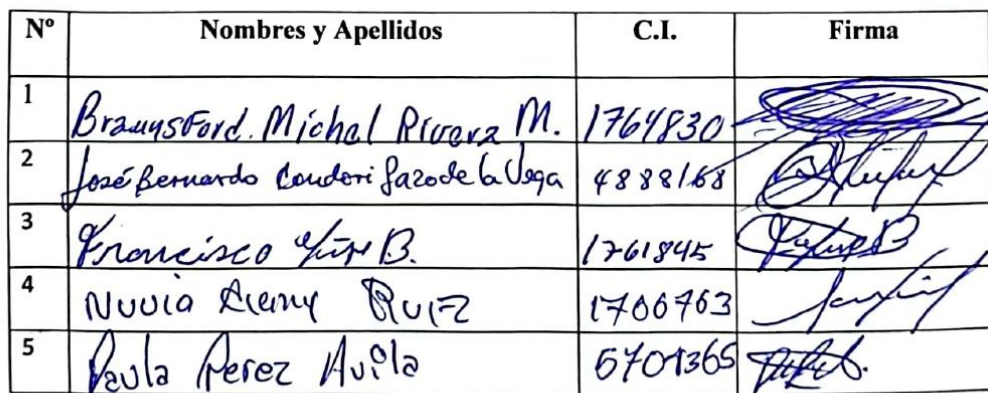 Nº Nombres y Apellidos C.I. Firma
1 Bramysford. Michal Rivera M. 1764830
2 José Bernardo Condori Garo de la Vega 4888168
3 Francisco B. 1761845
4 Nuvia Ruiz 1700763
5 Paula Perez Avila 5701365